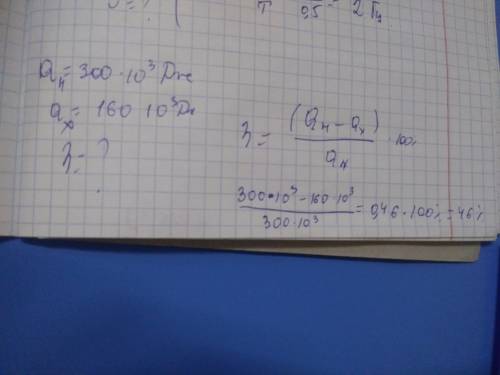 υ = ?
T 0,5 = 2 Гц
Qн = 300·10³ Дж
Qх = 160 10³ Дж
η = ?
η = (Qн – Qх) / Qн · 100%
300·10³ – 160·10³ / 300·10³ = 0,46 · 100% = 46%